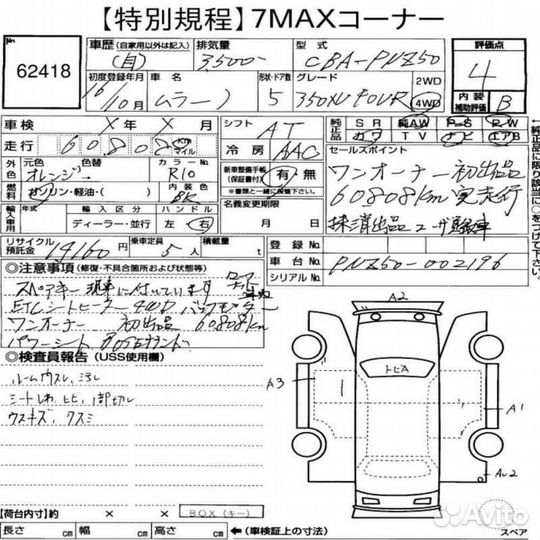 【特別規程】7MAXコーナー
No 62418
車歴 (自家用以外は記入) (自)
排気量 3500
型式 CBA-PNZ50
評価点 4
初度登録年月 16/10月
車名 ムラーノ
形状・ドア数 5
グレード 350XV FOUR
2WD
4WD
内装補助評価 B
車検 × 年 × 月
シフト AT
純正品 SR 純AW PS PW
カワ TV ナビ エアB
走行 60808 Km マイル
冷房 AAC
セールスポイント
外色 元色 オレンジ→ 色替
カラーNo. R10
新車整備手帳(保証書付) 有・無
ワンオーナー 初出品
60808km 実走行
燃料 ガソリン・軽油・( )
内装色 BK
名義変更期限 月 日
抹消出品 ユーザ買取車
輸入車用 年式 輸入区分 ハンドル
ディーラー・並行 左 右
リサイクル預託金 14160円
乗車定員 5人
積載量 t
登録No.
車台No. PNZ50-002196
シリアルNo.
◎注意事項 (修復・不具合箇所および状態等)
スペアキー 現車に付いています
ETC シートヒーター 4WD バックモニター
ワンオーナー 初出品 60808km
パワーシート BOSEサウンド
◎検査員報告 (USS使用欄)
ルームウスレ、ヨゴレ
シートしわ、ヒビ、1部切レ
ウスキズ、クスミ
A2
トビA
A3
A1
【荷台内寸】約 × ×
BOX(キー)
長さ cm 幅 cm 高さ cm
(車検証上の寸法)
スペア
←純正品に限り該当に○をつけて下さい。
Avito